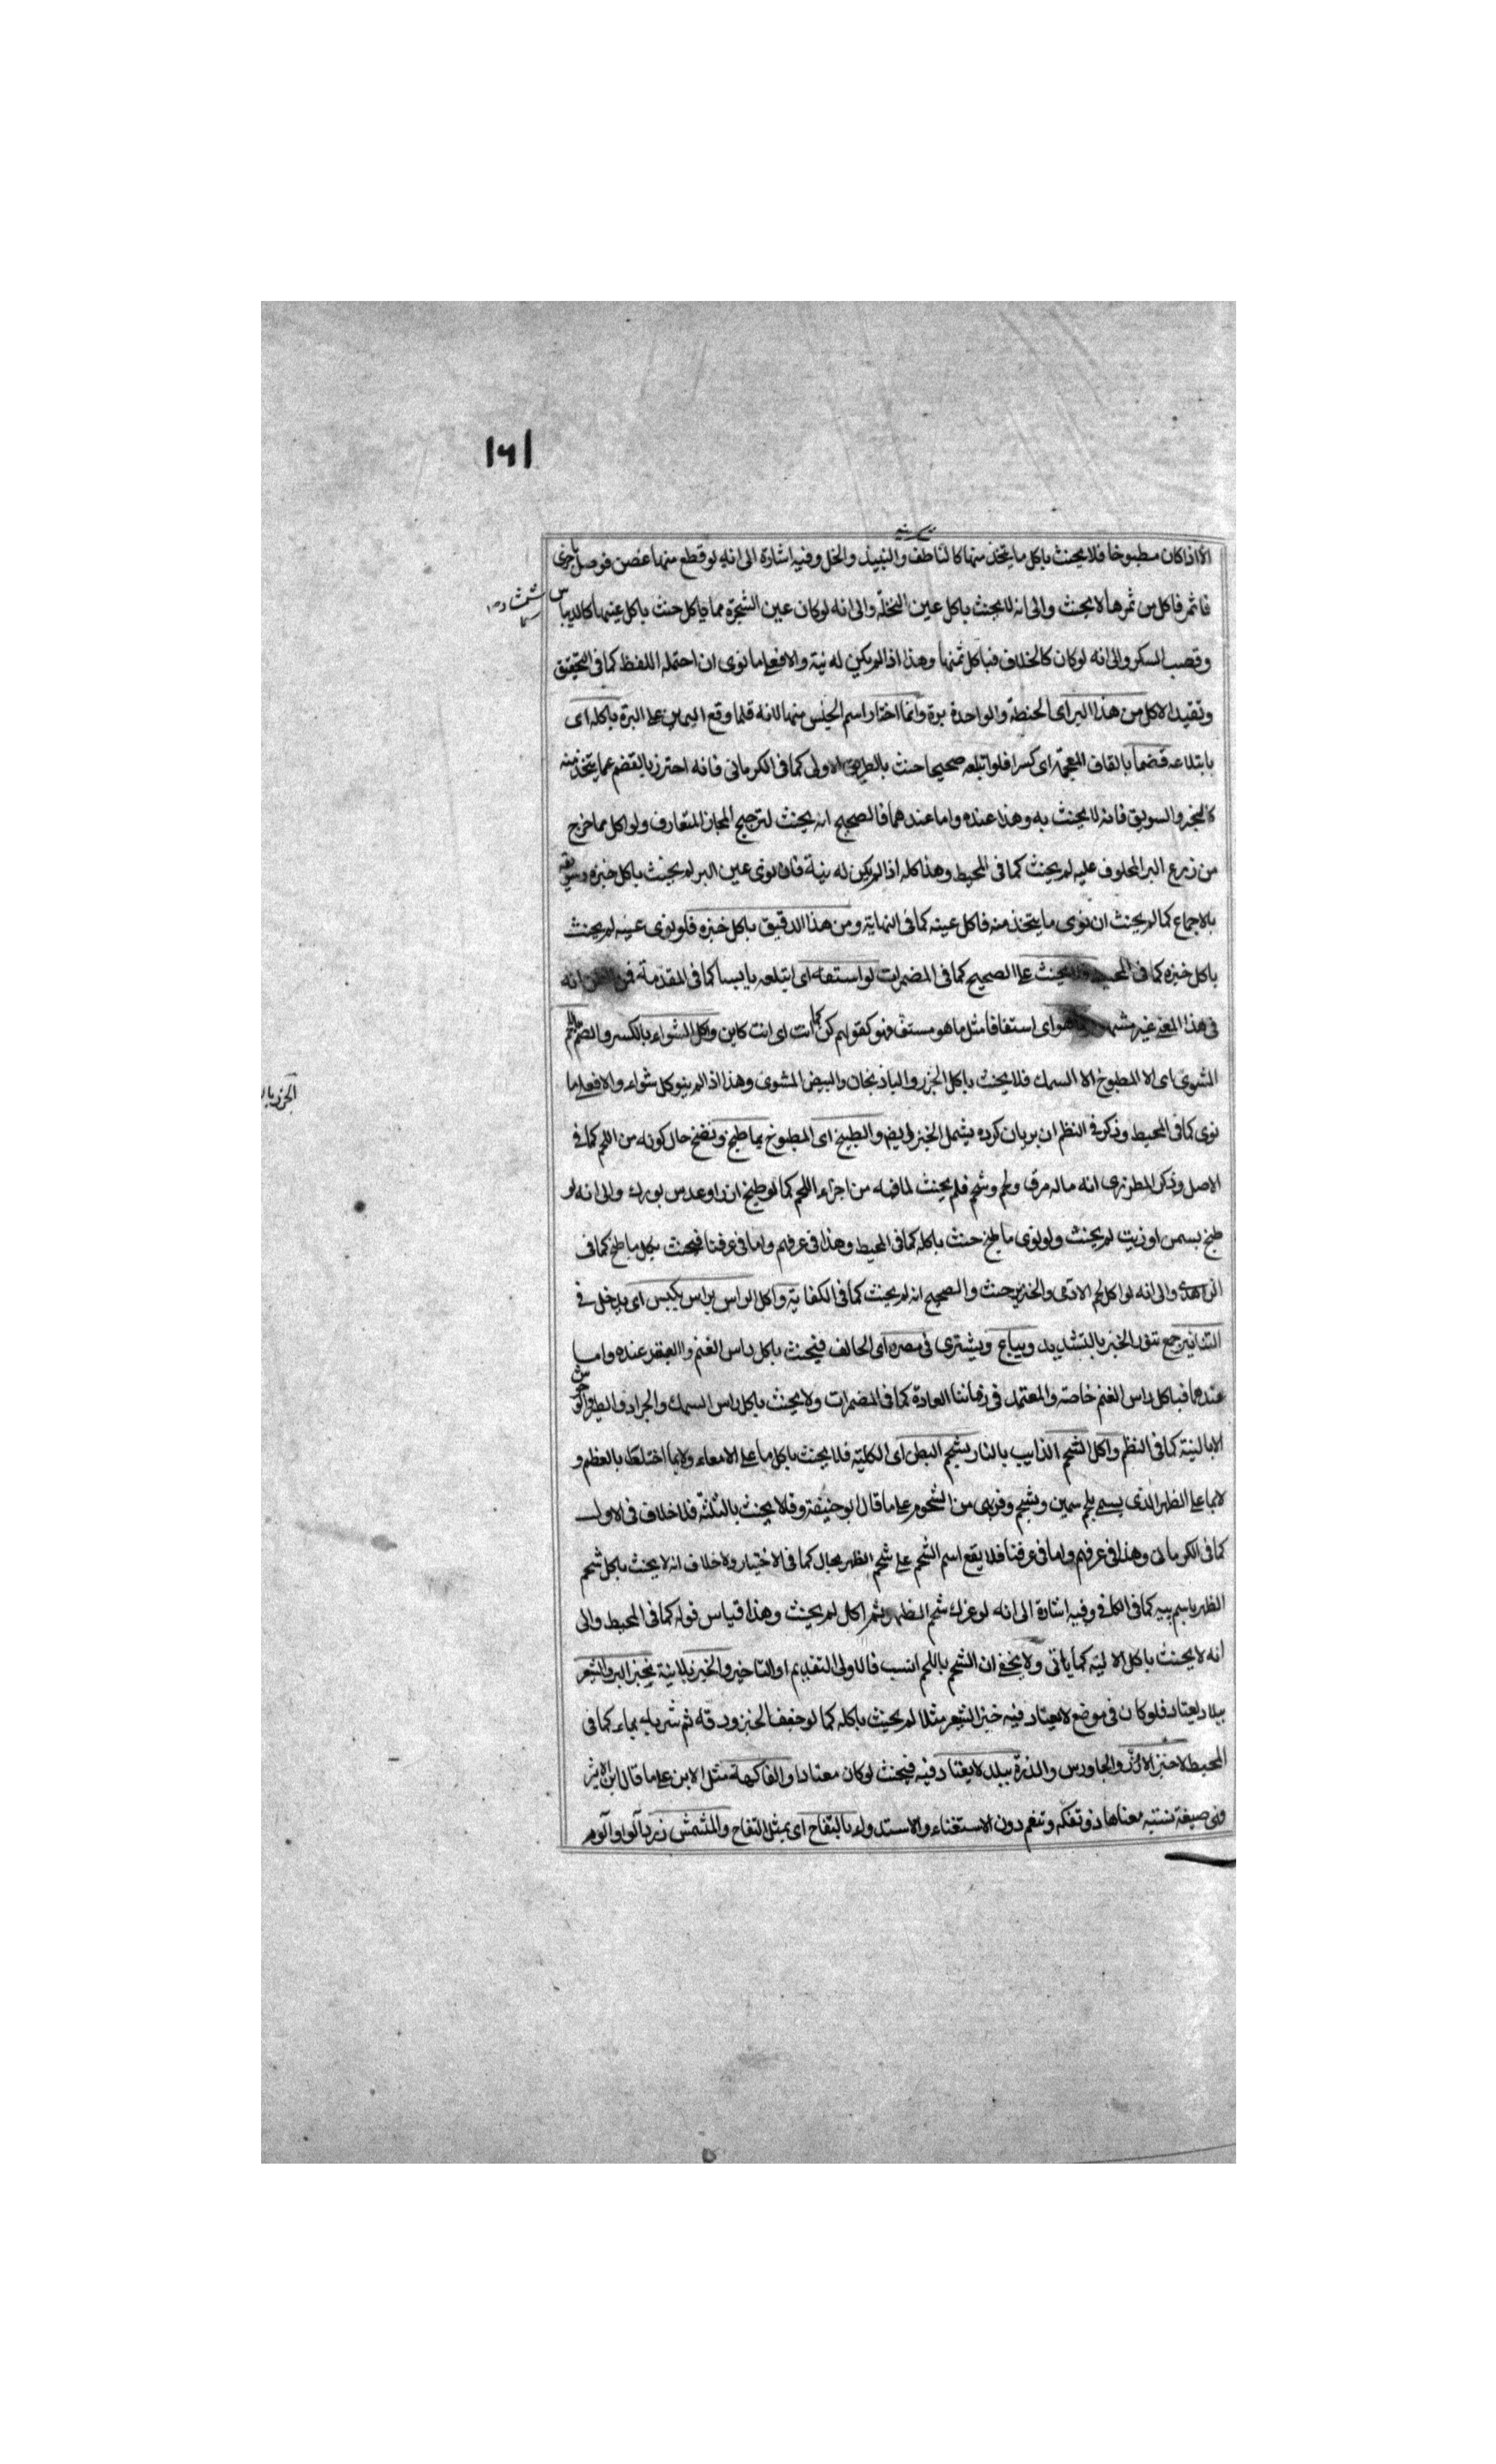 ١٦١
الا اذا كان مطبوخا فلا يحنث باكل ما يتخذ منها كالناطف والنبيذ والخل وفيه اشارة الى انه لو قطع منها غصن فوصل باخرى
فاثمر فاكل من ثمرها لا يحنث والى انه لا يحنث باكل عين النخلة والى انه لو كان عين الشجرة مما ياكل حنث باكل عينها كالديباس
وقصب السكر والى انه لو كان كالخلاف فباكل ثمنها وهذا اذا لم يكن له نية والا فعلى ما نوى ان احتمله اللفظ كما فى التحقيق
وتقيد الاكل من هذا البر اى الحنطة والواحدة برة وانما اختار اسم الجنس منها لانه قلما وقع اليمين على البرة باكله اى
بابتلاعه قضما بالقاف المعجمة اى كسرا فلو ابتلعه صحيحا حنث بالطريق الاولى كما فى الكرمانى فانه احترز بالقضم عما يتخذ منه
كالخبز والسويق فانه لا يحنث به وهذا عنده واما عندهما فالصحيح انه يحنث لترجيح المجاز المتعارف ولو اكل مما خرج
من زرع البر المحلوف عليه لم يحنث كما فى المحيط وهذا كله اذا لم يكن له نية فان نوى عين البر لم يحنث باكل خبزه وسويقه
بالاجماع كما لم يحنث ان نوى ما يتخذ منه فاكل عينه كما فى النهاية ومن هذا الدقيق باكل خبزه فلو نوى عينه لم يحنث
باكل خبزه كما فى المحيط ولا يحنث على الصحيح كما فى المضمرات لو استفه اى ابتلعه يابسا كما فى المقدمة فمن الظن انه
فى هذا المعنى غير مشهور كما هو اى استفافا مثل ما هو مستف فهو كقولهم كن كما انت اى انت كاين واكل الشواء بالكسر والضم باللحم
المشوى اى لا المطبوخ الا السمك فلا يحنث باكل الجزر والباذنجان والبيض المشوى وهذا اذا لم ينو كل شواء والا فعلى ما
نوى كما فى المحيط وذكر فى النظم ان بريان كرده يشمل الخبز والبيض والطبيخ اى المطبوخ بما طبخ ونضج حال كونه من اللحم كما فى
الاصل وذكر المطرزى انه ما له مرق ولحم وشحم فلم يحنث لما فيه من اجزاء اللحم كما لو طبخ ارز او عدس بودك والى انه لو
طبخ بسمن او زيت لم يحنث ولو نوى ما طبخ حنث باكله كما فى المحيط وهذا فى عرفهم واما فى عرفنا فيحنث بكل ما طبخ كما فى
الزاهدى والى انه لو اكل لحم الادمى والخنزير حنث والصحيح انه لم يحنث كما فى الكفاية واكل الراس براس يكبس اى يدخل فى
التنانير جمع تنور الخبز بالتشديد ويباع ويشترى فى مصره اى الحالف فيحنث باكل راس الغنم والبقر عنده واما
عندهما فباكل راس الغنم خاصة والمعتمد فى زماننا العادة كما فى المضمرات ولا يحنث باكل راس السمك والجراد والطير والوحش
الا بالنية كما فى النظم واكل الشحم الذايب بالنار بشحم البطن اى الكلية فلا يحنث باكل ما على الامعاء ولا بما اختلط بالعظم و
لا بما على الظهر الذى يسمى بلحم سمين وبشحم وفربهى من الشحوم على ما قال ابو حنيفة وفلا يحنث بالثلثة فلا خلاف فى الاول
كما فى الكرمانى وهذا فى عرفهم واما فى عرفنا فلا يقع اسم الشحم على شحم الظهر بحال كما فى الاختيار ولا خلاف انه لا يحنث باكل شحم
الظهر باسم پيه كما فى الكافى وفيه اشارة الى انه لو عزل شحم الظهر ثم اكل لم يحنث وهذا قياس قوله كما فى المحيط والى
انه لا يحنث باكل الالية كما ياتى ولا يخفى ان الشحم باللحم انسب فالاولى التقديم او التاخير والخبز بلا نية بخبز البر والشعير
ببلاد يعتاد فلو كان فى موضع لا يعتاد فيه خبز الشعير مثلا لم يحنث باكله كما لو جفف الخبز ودقه ثم شربه بماء كما فى
المحيط لا خبز الارز والجاورس والذرة ببلد لا يعتاد فيه فيحنث لو كان معتادا والفاكهة مثل الابن على ما قال ابن الاثير
وهى صيغة نسبة معناها ذو تفكه وتنعم دون الاستغناء والاستدواء بالتفاح اى بمثل التفاح والمشمش زردآلو او آلو